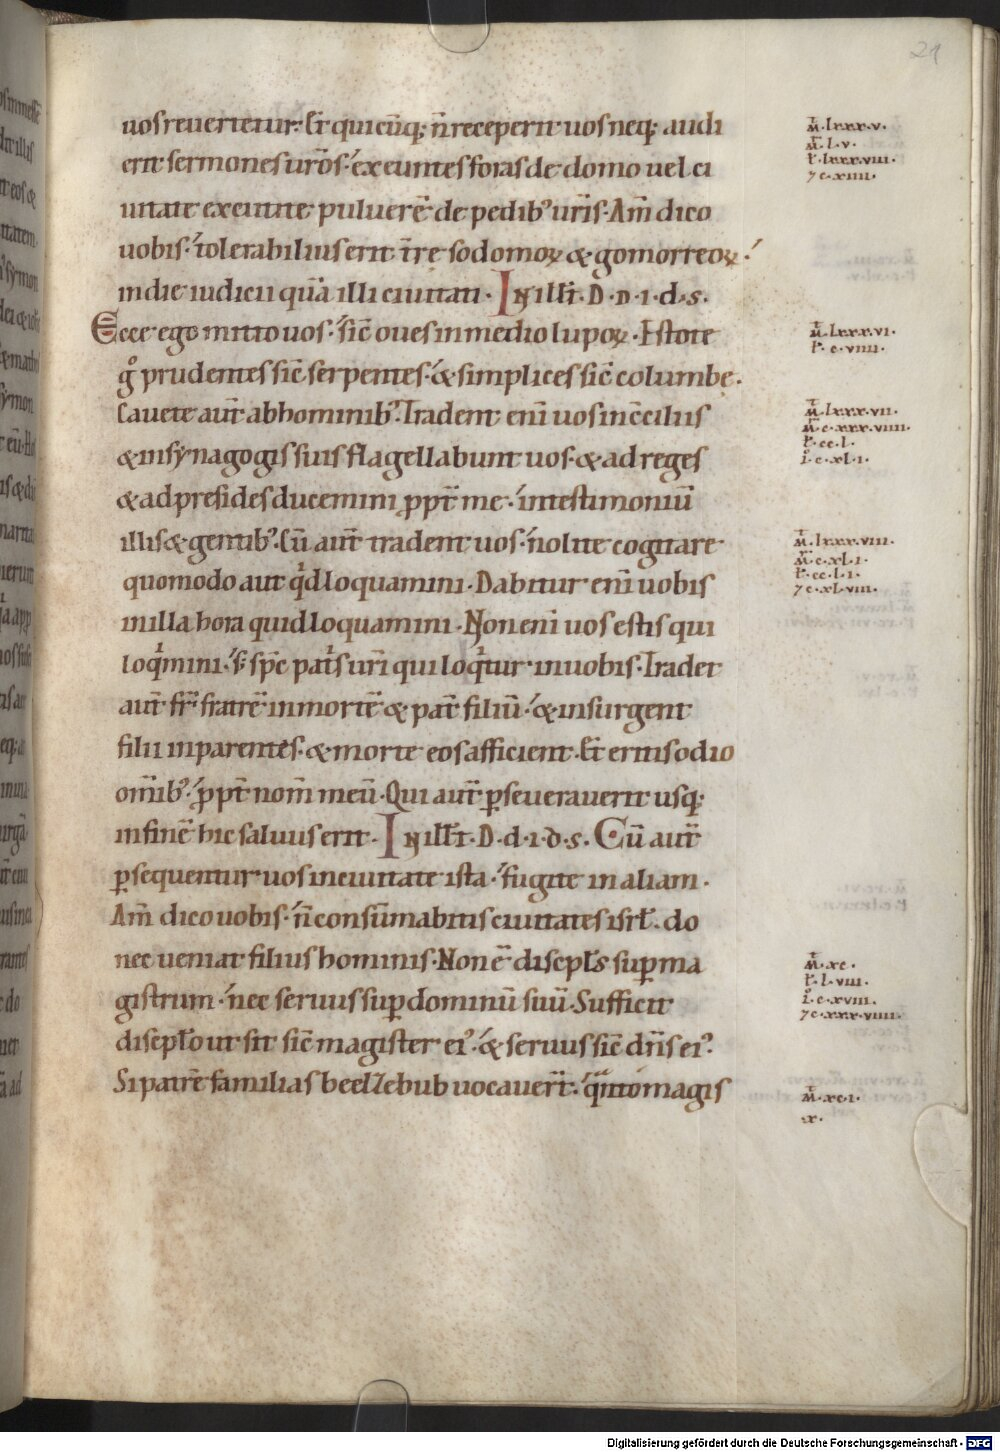 21
uos reuertetur. Et quicūq; n̄ receperit uos neq; audi
erit sermones ur̄os. exeuntes foras de domo uel ci
uitate excutite puluerē de pedib; ur̄is. Am̄ dico
uobis. tolerabilius erit tr̄e sodomoꝝ & gomorreoꝝ.
in die iudicii quā illi ciuitati. In illt̄. D. n. i. d. s.
Ecce ego mitto uos. sic̄ oues in medio lupoꝝ. Estote
gͦ prudentes sic̄ serpentes. & simplices sic̄ columbę.
Cauete aut̄ ab hominib;. Tradent eni uos in c̄ciliis
& in synagogis suis flagellabunt uos. & ad reges
& ad presides ducemini ꝓpt̄ me. in testimoniū
illis & gentib;. Cū aut̄ tradent uos. nolite cogitare
quomodo aut qd loquamini. Dabitur eni uobis
in illa hora quid loquamini. Non eni uos estis qui
loqmini. s; sp̄c pat̄s ur̄i qui loqtur in uobis. Tradet
aut̄ fr̄ fratrē in mortē & pat̄ filiū. & insurgent
filii in parentes. & morte eos afficient. Et eritis odio
om̄ib;. ꝓpt̄ nom̄ meū. Qui aut̄ ꝑseuerauerit usq;
in finē hic saluus erit. In illt̄. D. d. i. d. s. Cū aut̄
ꝑsequentur uos in ciuitate ista. fugite in aliam.
Am̄ dico uobis. n̄ consūmabitis ciuitates isrł. do
nec ueniat filius hominis. Non ē discipłs suꝑ ma
gistrum. nec seruus suꝑ dominū suū. Sufficit
discipło ut sit sic̄ magister ei;. & seruus sic̄ dn̄s ei;.
Si patrē familias beelzebub uocauer̄t. qnto magis
M̄. lxxx.v.
M̄. l.v.
ł. lxxx.viii.
7 c.xiiii.
M̄. lxxx.vi.
ł. c.viiii.
M̄. lxxx.vii.
M̄. c.xxx.viiii.
ł. cc.l.
i. c.xl.i.
M̄. lxxx.viii.
M̄. c.xl.i.
ł. cc.l.i.
7 c.xl.viii.
M̄. xc.
ł. l.viii.
i. c.xviii.
7 c.xxx.viiii.
M̄. xc.i.
x.
Digitalisierung gefördert durch die Deutsche Forschungsgemeinschaft - DFG